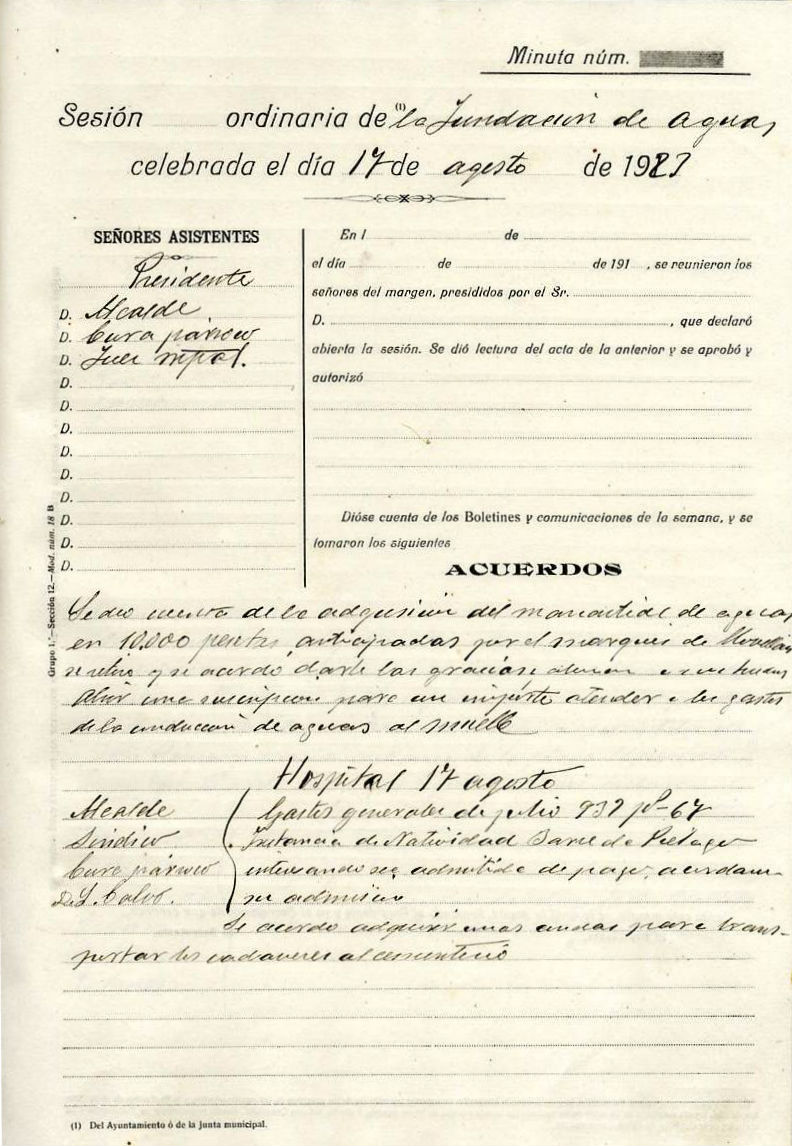 Minuta núm.
Sesión ordinaria de (1) la Fundación de aguas
celebrada el día 17 de agosto de 1923
SEÑORES ASISTENTES
Presidente
D. Alcalde
D. Cura párroco
D. Juez mpal.
D.
D.
D.
D.
D.
D.
D.
D.
D.
En l de
el día de de 191 , se reunieron los
señores del margen, presididos por el Sr.
D. , que declaró
abierta la sesión. Se dió lectura del acta de la anterior y se aprobó y
autorizó
Dióse cuenta de los Boletines y comunicaciones de la semana, y se
tomaron los siguientes
ACUERDOS
Se dio cuenta de la adquisición del manantial de aguas
en 10.000 pesetas anticipadas por el marques de
y se acordo darle las gracias
abrir una suscripcion para su importe atender a los gastos
de la conducción de aguas al muelle
Hospital 17 agosto
Alcalde
Sindico
Cura párroco
D. S. Calvo.
Gastos generales de julio 932 pts 67
Instancia de Natividad de Pielago
interesando sea admitida de pago, acordam
su admisión
Se acordo adquirir unas andas para trans-
portar los cadaveres al cementerio
Grupo 1.º—Sección 12.—Mod. núm. 18 B
(1) Del Ayuntamiento ó de la junta municipal.